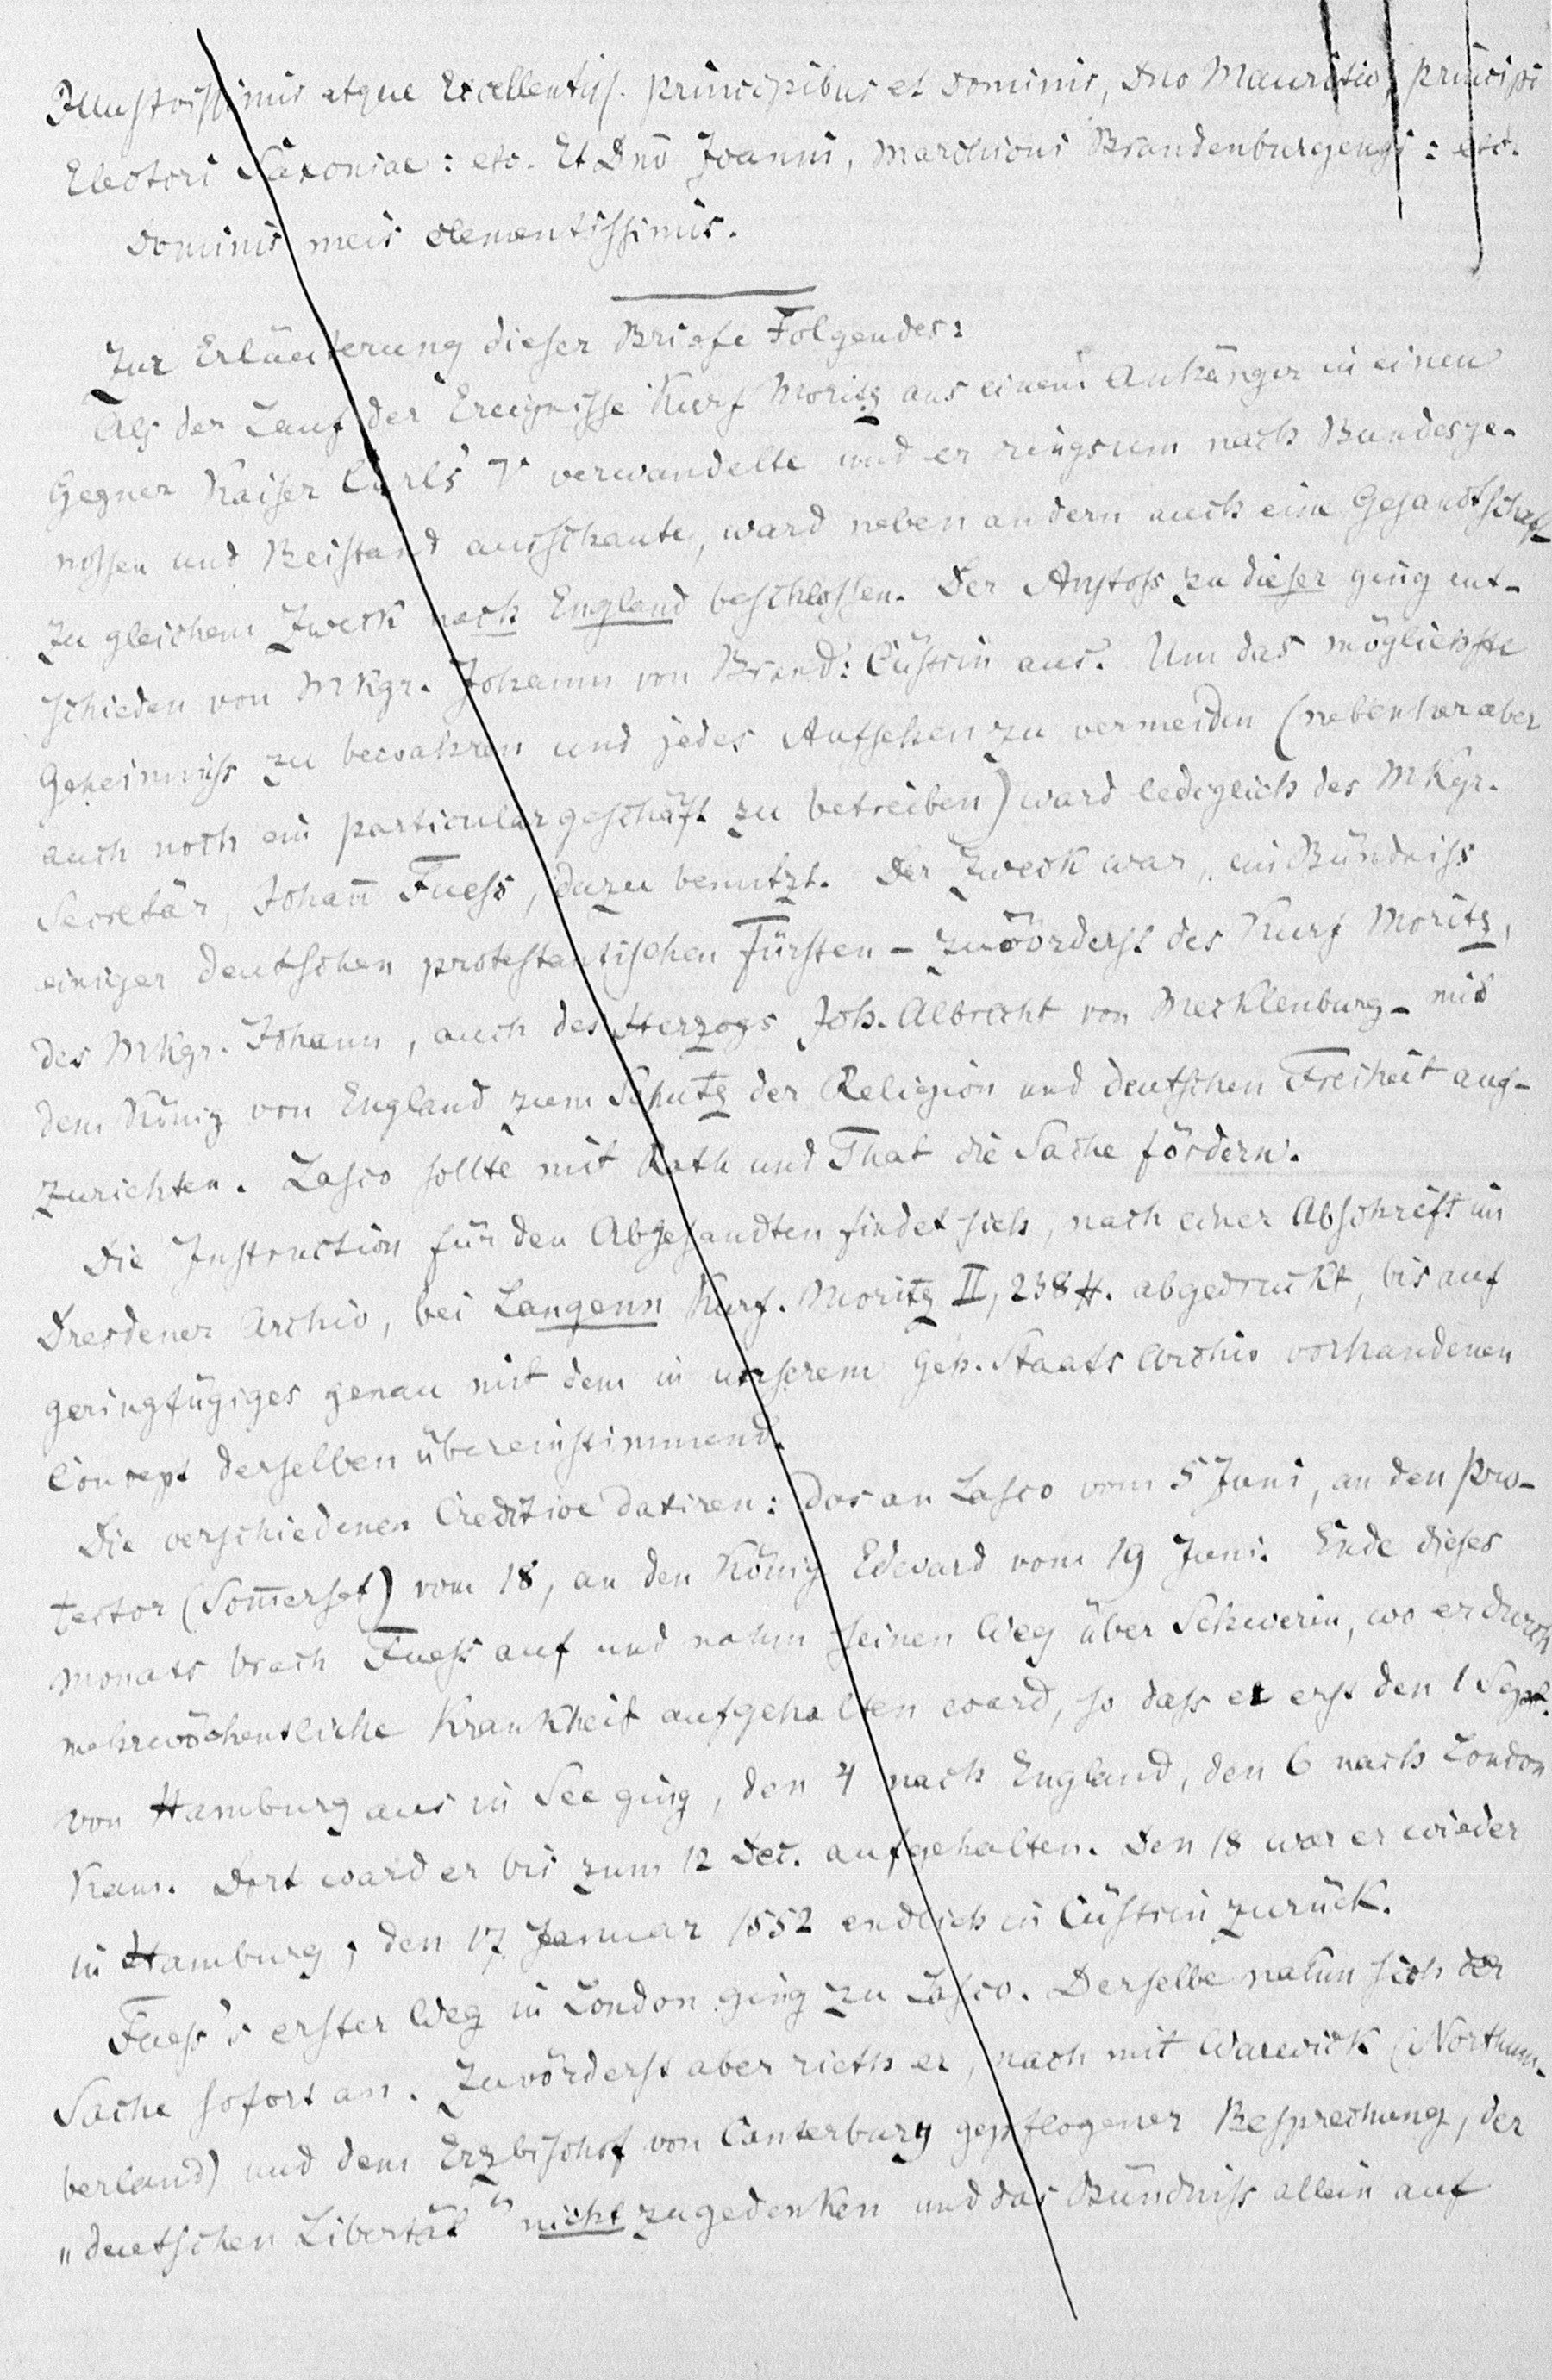 Illustrissimis atque Excellentiss. principibus et dominis, Dno Mauritio, principi
Electori Saxoniae: etc. Et Dnō Joanni, Marchioni Brandenburgensi: etc.
Dominis meis clementissimis.
Zur Erläuterung dieser Briefe Folgendes:
Als der Lauf der Ereignisse Kurf Moritz aus einem Anhänger in einen
Gegner Kaiser Carls V verwandelte und er ringsum nach Bundesge-
nossen und Beistand ausschaute, ward neben andern auch eine Gesandtschaft
zu gleichem Zweck nach England beschlossen. Der Anstoss zu dieser ging ent-
schieden von MKgr. Johann von Brand: Cüstrin aus. Um das möglichste
Geheimniss zu bewahren und jedes Aufsehen zu vermeiden (nebenher aber
auch noch ein particulargeschäft zu betreiben) ward lediglich des MKgr.
Secretär, Johañ Fuess, dazu benutzt. Der Zweck war, ein Bündniss
einiger deutschen protestantischen Fürsten – zuvörderst des Kurf Moritz,
des MKgr. Johann, auch des Herzogs Joh. Albrecht von Mecklenburg – mit
dem König von England zum Schutz der Religion und deutschen Freiheit auf-
zurichten. Lasco sollte mit Rath und That die Sache fördern.
Die Instruction für den Abgesandten findet sich, nach einer Abschrift im
Dresdener Archiv, bei Langenn Kurf. Moritz II, 238 ff. abgedruckt, bis auf
geringfügiges genau mit dem in unserem Geh. Staats Archiv vorhandenen
Concept derselben übereinstimmend.
Die verschiedenen Creditive datiren: das an Lasco vom 5 Juni, an den Pro-
tector (Som̄erset) vom 18, an den König Edward vom 19 Juni. Ende dieses
Monats brach Fuess auf und nahm seinen Weg über Schwerin, wo er durch
mehrwöchentliche Krankheit aufgehalten ward, so dass er erst den 1 Sept.
von Hamburg aus in See ging, den 4 nach England, den 6 nach London
kam. Dort ward er bis zum 12 Dec. aufgehalten. Den 18 war er wieder
in Hamburg, den 17 Januar 1552 endlich in Cüstrin zurück.
Fuess's erster Weg in London ging zu Lasco. Derselbe nahm sich der
Sache sofort an. Zuvörderst aber rieth er, nach mit Warwick (Northum-
berland) und dem Erzbischof von Canterbury gepflogener Besprechung, der
„deutschen Libertät“ nicht zu gedenken und das Bündniss allein auf